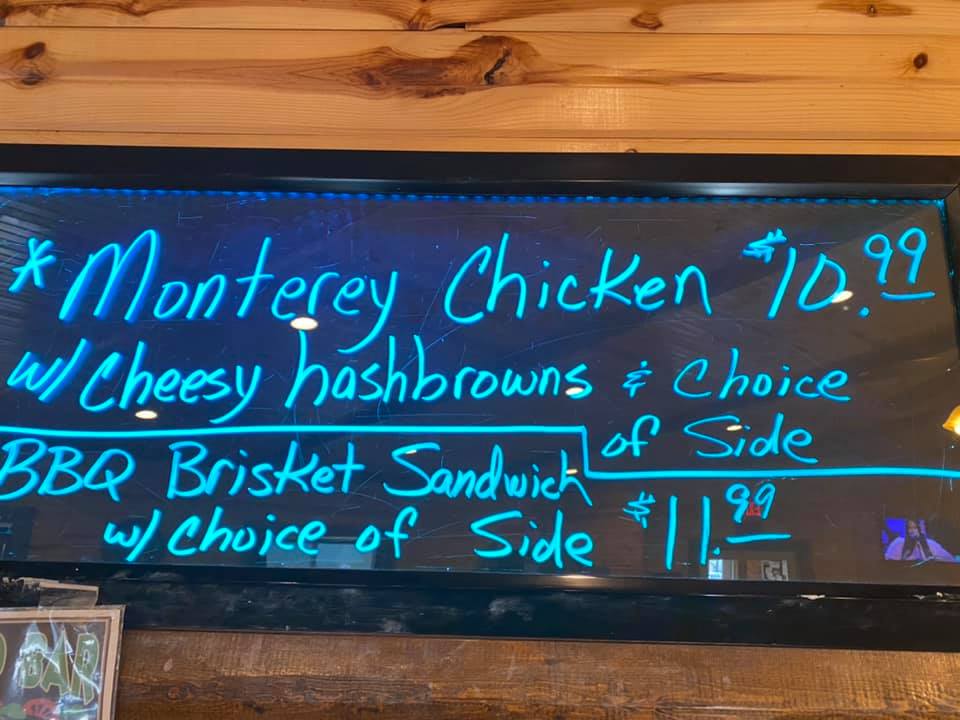 * Monterey Chicken $10.99
w/ Cheesy hashbrowns & Choice
of Side
BBQ Brisket Sandwich
w/ Choice of Side $11.99
BAR